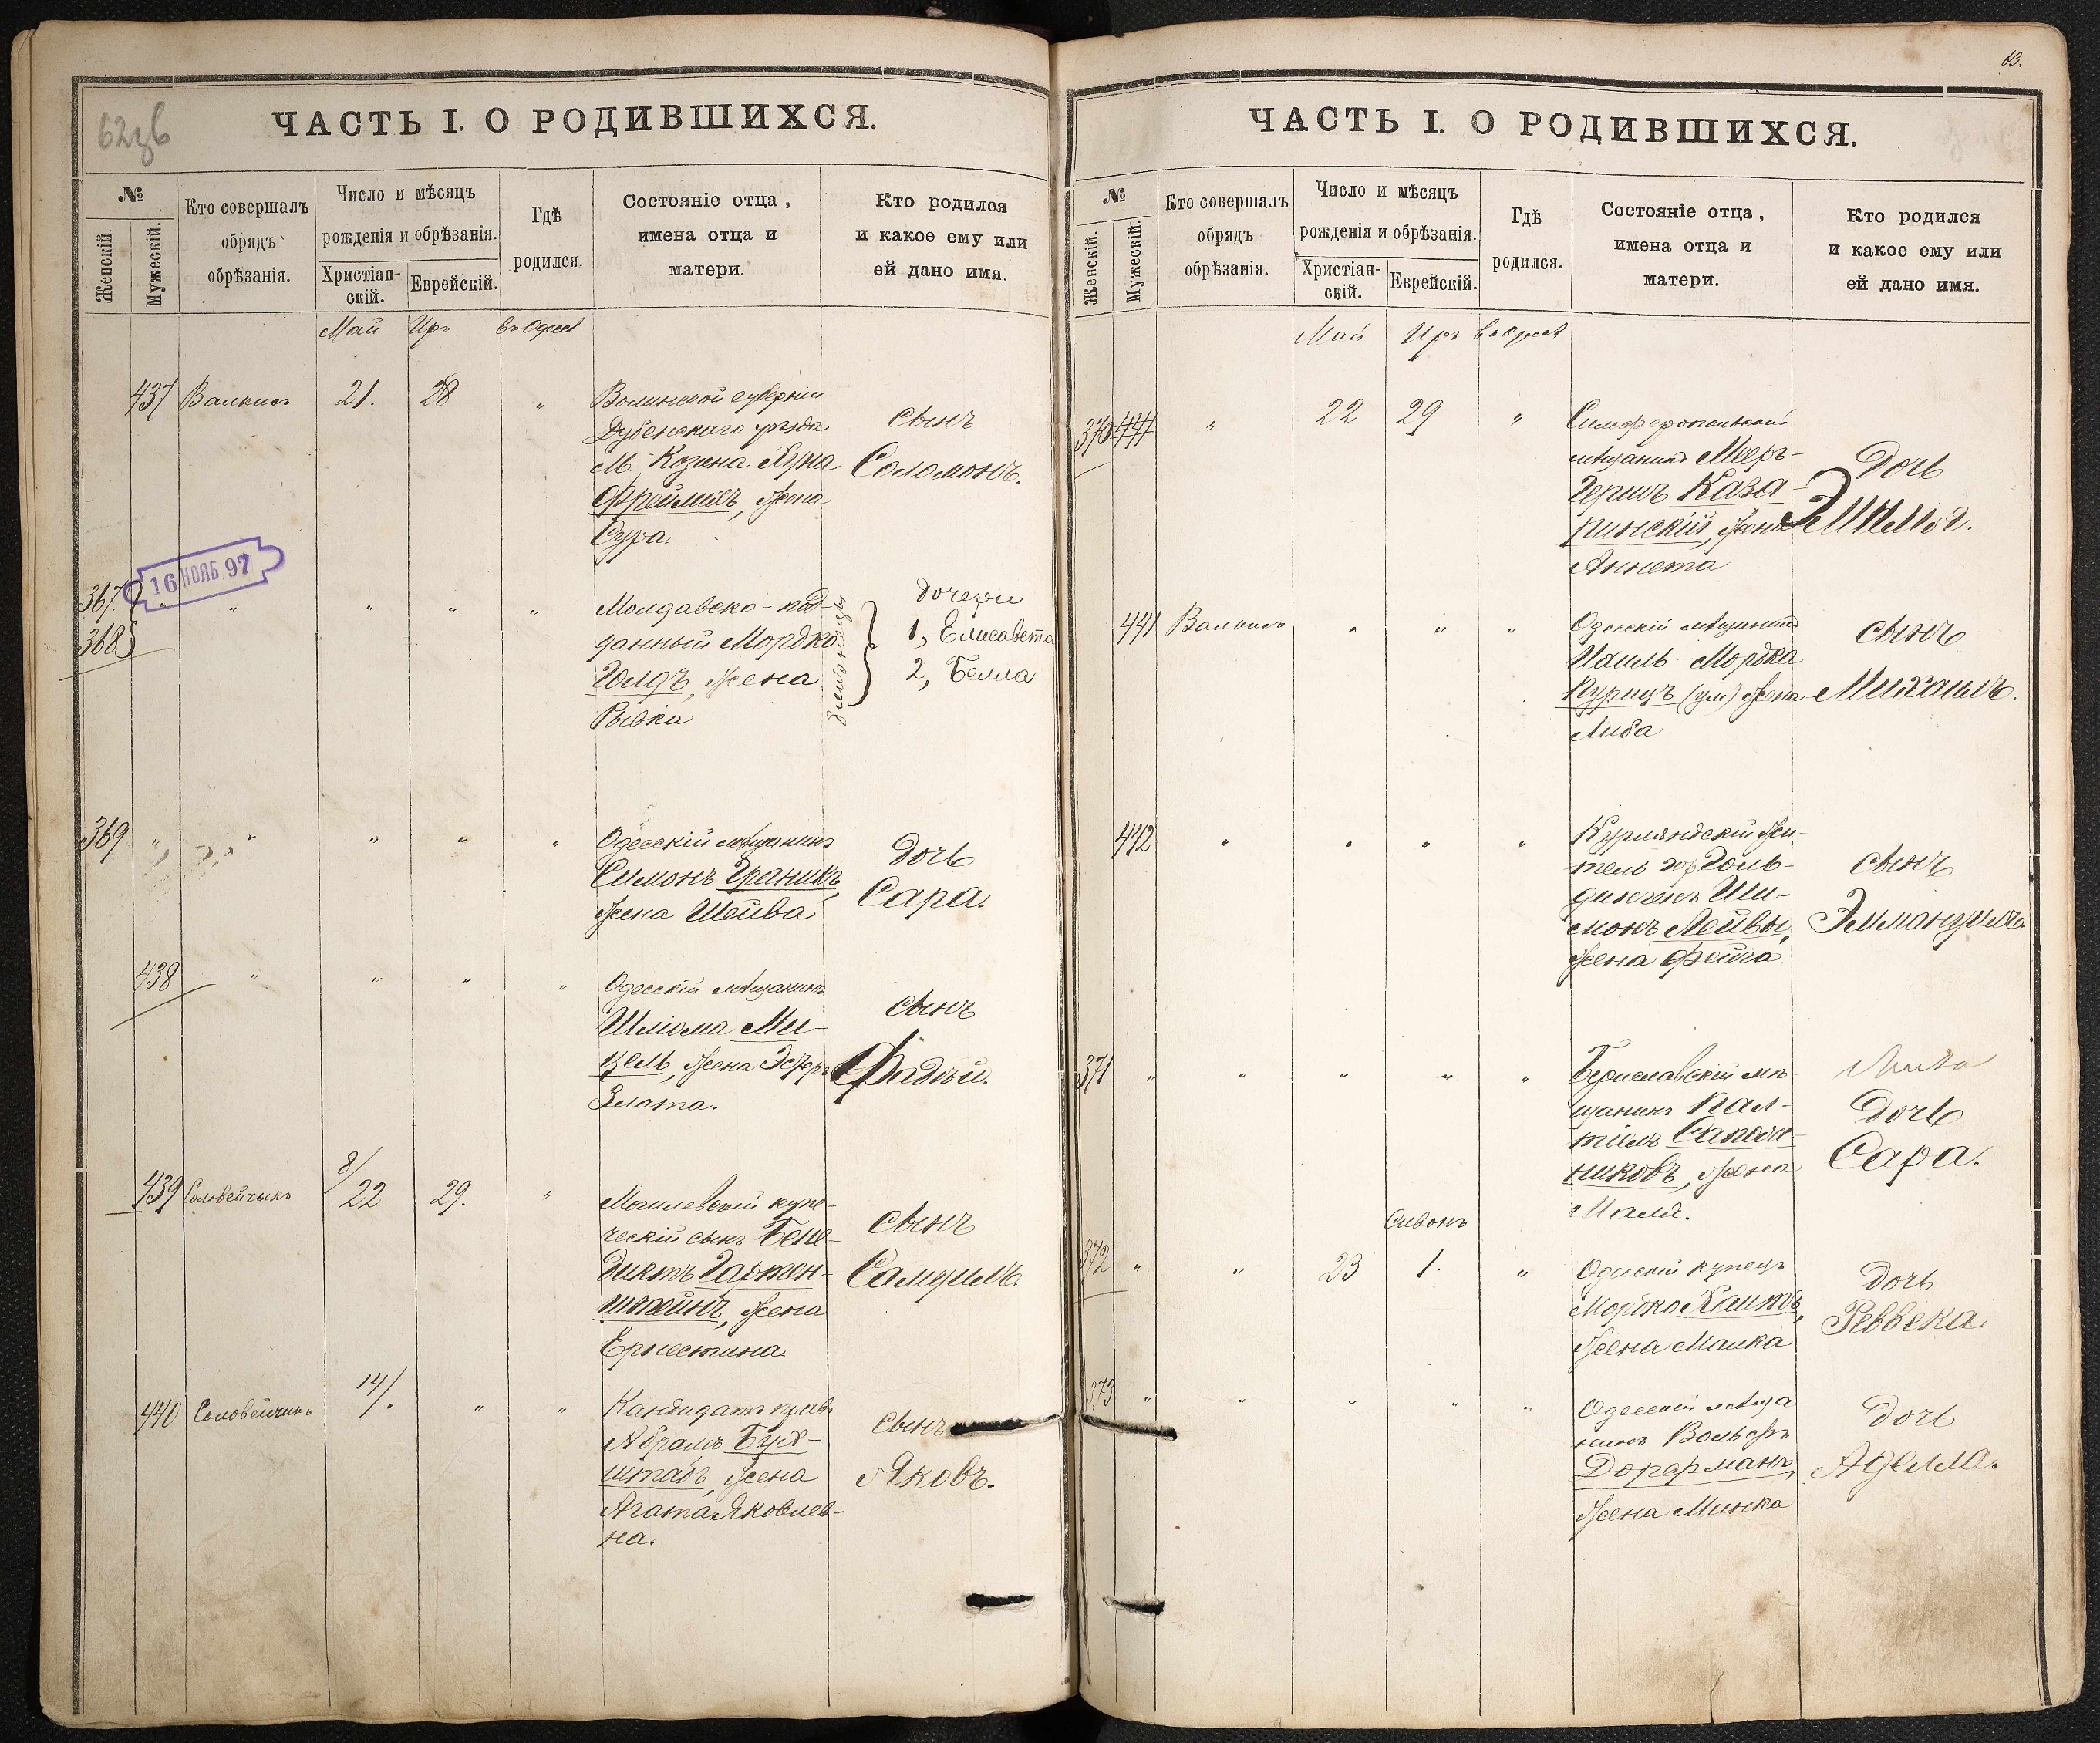 62об
ЧАСТЬ I. О РОДИВШИХСЯ.
№
Женскій.
Мужескій.
Кто совершалъ
обрядъ
обрѣзанія.
Число и мѣсяцъ
рожденія и обрѣзанія.
Христіан-
скій.
Еврейскій.
Гдѣ
родился.
Состояніе отца,
имена отца и
матери.
Кто родился
и какое ему или
ей дано имя.
Май Иръ въ Одессѣ
437 Валкисъ 21. 28 "
Волынской губерніи
Дубенскаго уѣзда
М. Козина Хуна
Фреймихъ, жена
Сура.
сынъ
Соломонъ.
16 НОЯБ 97
367
368
" " " " "
Молдавско-под-
данный Мордко
Голдъ, жена
Рывка
близнецы
дочери
1, Елисавета
2, Белла
369 " " " " "
Одесскій мѣщанинъ
Симонъ Граникъ,
жена Шейва
дочь
Сара.
438 " " " "
Одесскій мѣщанинъ
Шліома Ми-
цель, жена Эсфирь
Злата.
сынъ
Фадѣй.
439 Соловейчикъ 8/22 29. "
Могилевскій купе-
ческій сынъ Бене-
диктъ Гартен-
штейнъ, жена
Ернестина.
сынъ
Самуилъ.
440 Соловейчикъ 14/. " "
Кандидатъ правъ
Абрамъ Бух-
штабъ, жена
Агата Яковлев-
на.
сынъ
Яковъ.
63.
ЧАСТЬ I. О РОДИВШИХСЯ.
№
Женскій.
Мужескій.
Кто совершалъ
обрядъ
обрѣзанія.
Число и мѣсяцъ
рожденія и обрѣзанія.
Христіан-
скій.
Еврейскій.
Гдѣ
родился.
Состояніе отца,
имена отца и
матери.
Кто родился
и какое ему или
ей дано имя.
Май Иръ въ Одессѣ
370 441 " 22 29 "
Симферопольскій
мѣщанинъ Мееръ-
Гершъ Каза-
ринскій, жена
Аннета
Дочь
Эмилія.
441 Валкисъ " " "
Одесскій мѣщанинъ
Ихиль-Мордка
Курицъ (ум) жена
Либа
сынъ
Михаилъ.
442 " " " "
Курляндскій жи-
тель гор. Голь-
дингенъ Ши-
монъ Лейвы,
жена Фейга.
сынъ
Эммануилъ
371 " " " " "
Бериславскій мѣ-
щанинъ Пал-
тіелъ Сапож-
никовъ, жена
Маля.
Дочь
Сара.
Сивонъ
372 " " 23 1. "
Одесскій купецъ
Мордко Хаитъ,
жена Малка
Дочь
Реввека.
373 " " " " "
Одесскій мѣща-
нинъ Вольфъ
Дорфманъ,
жена Минка
Дочь
Аделла.